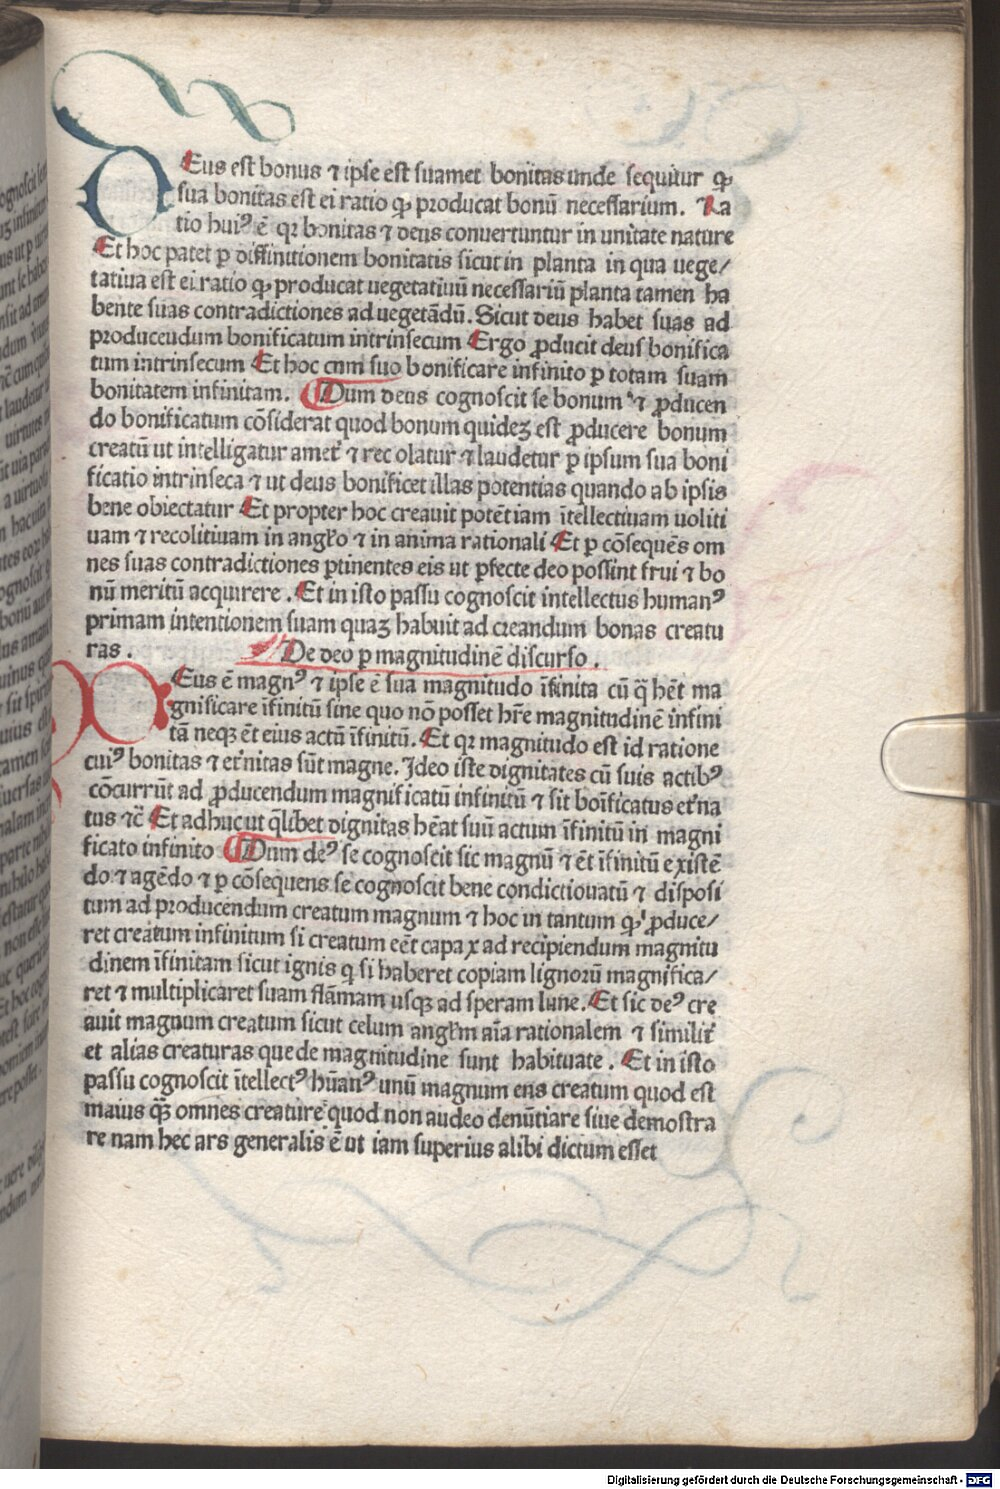 DEus est bonus ⁊ ipse est suamet bonitas unde sequitur ꝙ
sua bonitas est ei ratio ꝙ producat bonū necessarium. Ra
tio huiꝰ ē qꝛ bonitas ⁊ deus conuertuntur in unitate nature
Et hoc patet ꝑ diffinitionem bonitatis sicut in planta in qua uege/
tatiua est ei ratio ꝙ producat uegetatiuū necessariū planta tamen ha
bente suas contradictiones ad uegetādū. Sicut deus habet suas ad
producendum bonificatum intrinsecum Ergo ꝓducit deus bonifica
tum intrinsecum Et hoc cum suo bonificare infinito ꝑ totam suam
bonitatem infinitam. Dum deus cognoscit se bonum ⁊ ꝓducen
do bonificatum cōsiderat quod bonum quidez est ꝓducere bonum
creatū ut intelligatur amet̄ ⁊ rec olatur ⁊ laudetur ꝑ ipsum sua boni
ficatio intrinseca ⁊ ut deus bonificet illas potentias quando ab ipsis
bene obiectatur Et propter hoc creauit potētiam ītellectiuam uoliti
uam ⁊ recolitiuam in angło ⁊ in anima rationali Et ꝑ cōsequēs om
nes suas contradictiones ꝑtinentes eis ut ꝑfecte deo possint frui ⁊ bo
nū meritū acquirere. Et in isto passu cognoscit intellectus humanꝰ
primam intentionem suam quaz habuit ad creandum bonas creatu
ras.
De deo ꝑ magnitudinē discurso.
DEus ē magnꝰ ⁊ ipse ē sua magnitudo īfinita cū q̄ hēt ma
gnificare īfinitū sine quo nō posset hr̄e magnitudinē infini
tā neqꝫ ēt eius actū īfinitū. Et qꝛ magnitudo est id ratione
cuiꝰ bonitas ⁊ et̄nitas sūt magne. Ideo iste dignitates cū suis actibꝰ
cōcurrūt ad ꝓducendum magnificatū infinitū ⁊ sit boīficatus et̄na
tus ⁊c̄ Et adhuc ut q̄libet dignitas hēat suū actum īfinitū in magni
ficato infinito Dum deꝰ se cognoscit sic magnū ⁊ ēt īfinitū existē
do ⁊ agēdo ⁊ ꝑ cōsequens se cognoscit bene condictiouatū ⁊ disposi
tum ad producendum creatum magnum ⁊ hoc in tantum ꝙ ꝓduce/
ret creatum infinitum si creatum eēt capax ad recipiendum magnitu
dinem īfinitam sicut ignis q̄ si haberet copiam lignorū magnifica/
ret ⁊ multiplicaret suam flāmam usqꝫ ad speram lune. Et sic deꝰ cre
auit magnum creatum sicut celum angłm aīa rationalem ⁊ similit̄
et alias creaturas que de magnitudine sunt habituate. Et in īsto
passu cognoscit ītellectꝰ hūanꝰ unū magnum ens creatum quod est
maius qꝫ̄ omnes creature quod non audeo denūtiare siue demostra
re nam hec ars generalis ē ut iam superius alibi dictum esset
Digitalisierung gefördert durch die Deutsche Forschungsgemeinschaft - DFG